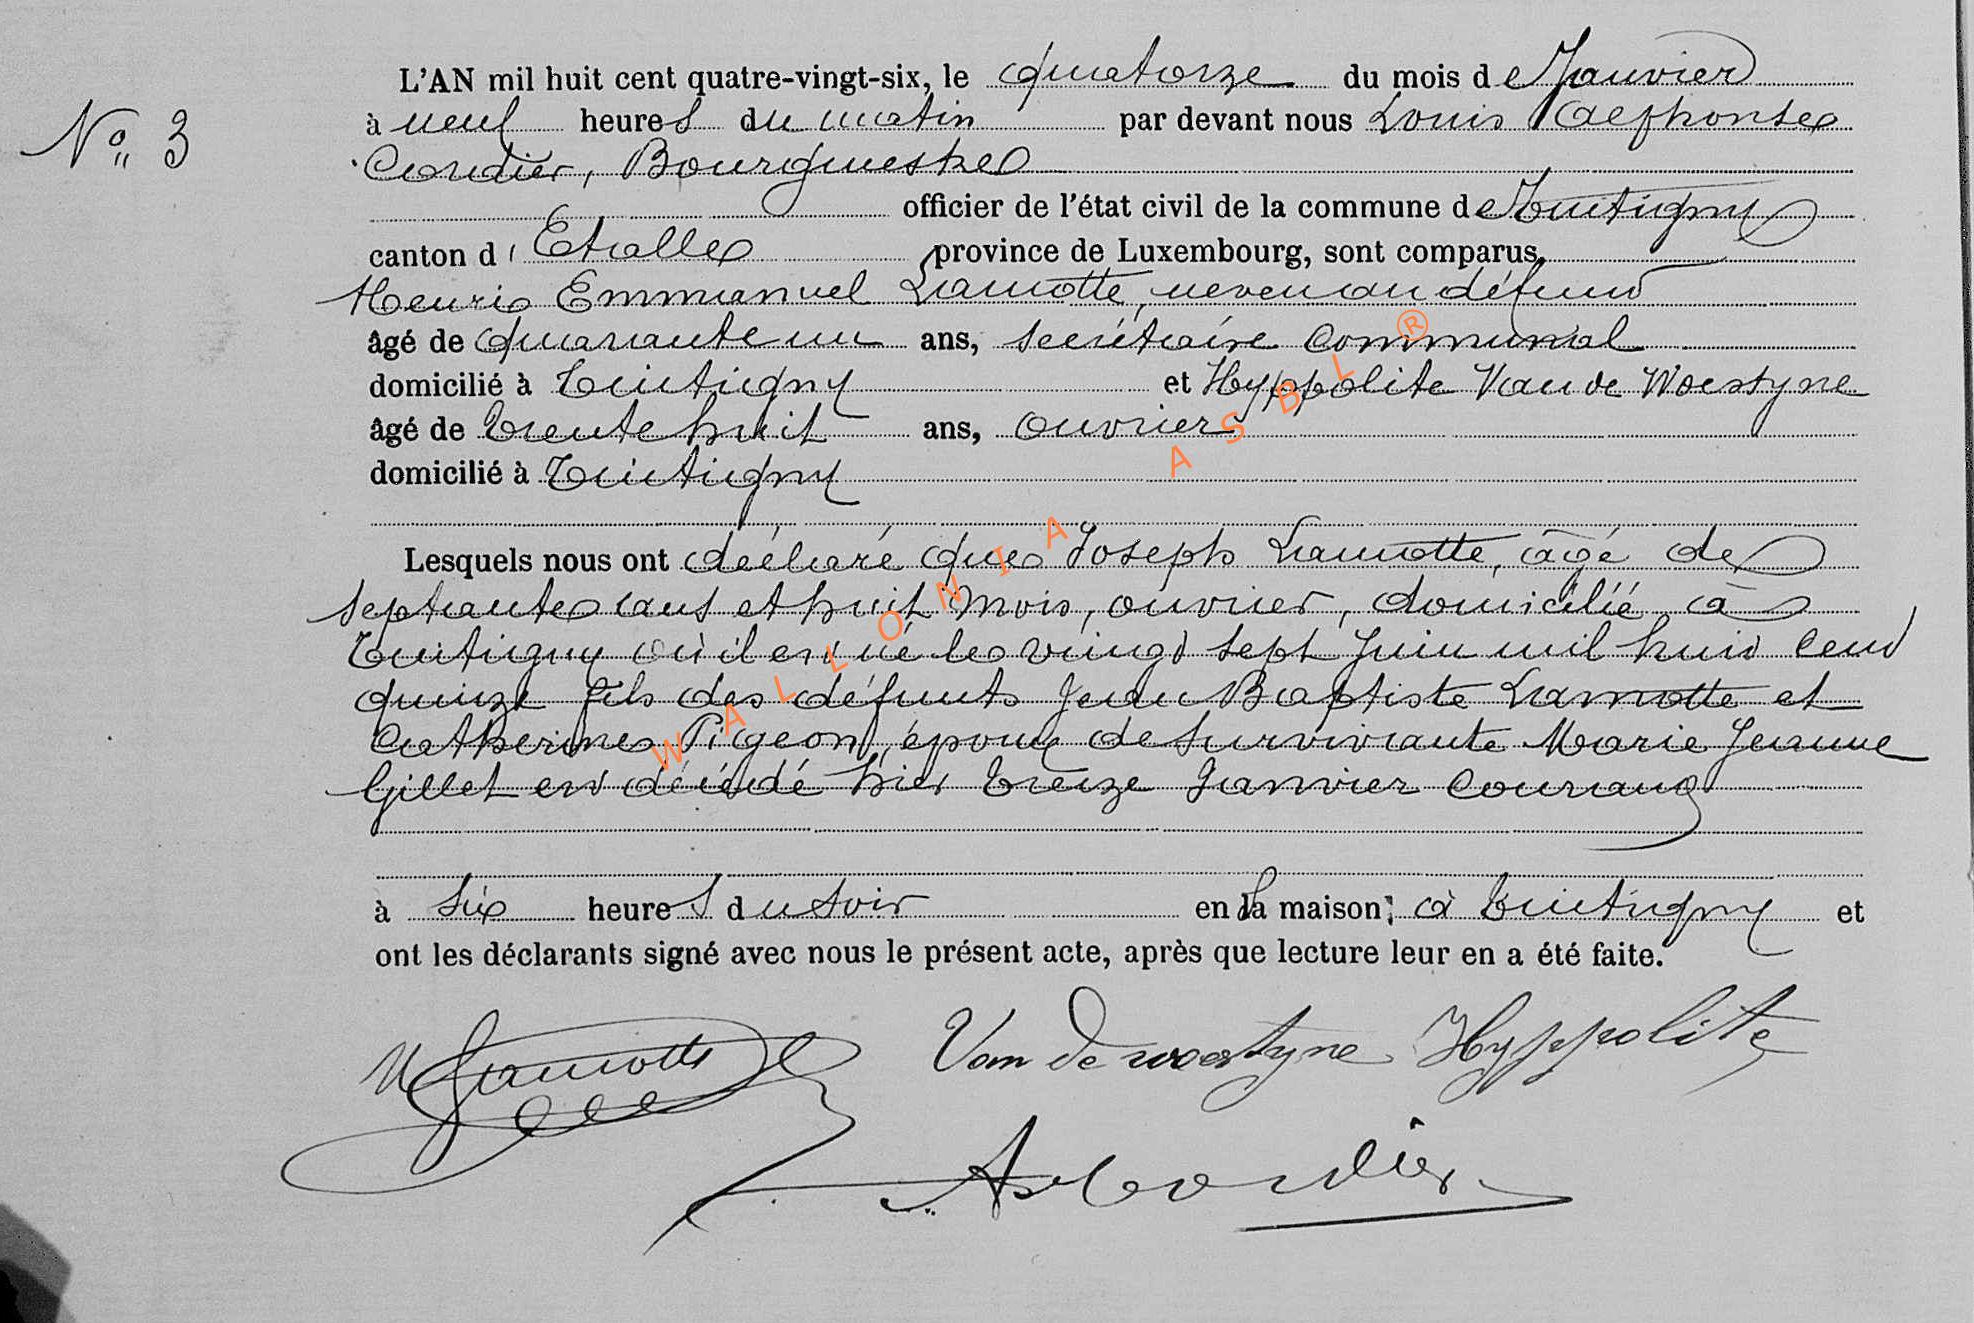 L'AN mil huit cent quatre-vingt-six, le quatorze du mois de Janvier
N° 3
à neuf heures du matin par devant nous Louis Alphonse
Cordier, Bourgmestre
officier de l'état civil de la commune de Tintigny
canton d'Etalle province de Luxembourg, sont comparus,
Henri Emmanuel Lamotte, neveu au défunt
âgé de quarante un ans, secrétaire communal
domicilié à Tintigny et Hyppolite Van de Woestyne
âgé de trente huit ans, ouvrier
domicilié à Tintigny
Lesquels nous ont déclaré que Joseph Lamotte, âgé de
septante ans et huit mois, ouvrier, domicilié à
Tintigny où il est né le vingt sept Juin mil huit cent
quinze fils des défunts Jean Baptiste Lamotte et
Catherine Pigeon, époux de survivante Marie Jeanne
Gillet est décédé hier treize Janvier courant
à six heures du soir en sa maison, à Tintigny et
ont les déclarants signé avec nous le présent acte, après que lecture leur en a été faite.
Lamotte Van de woestyne Hyppolite
A Cordier
WALLONIA ASBL ®